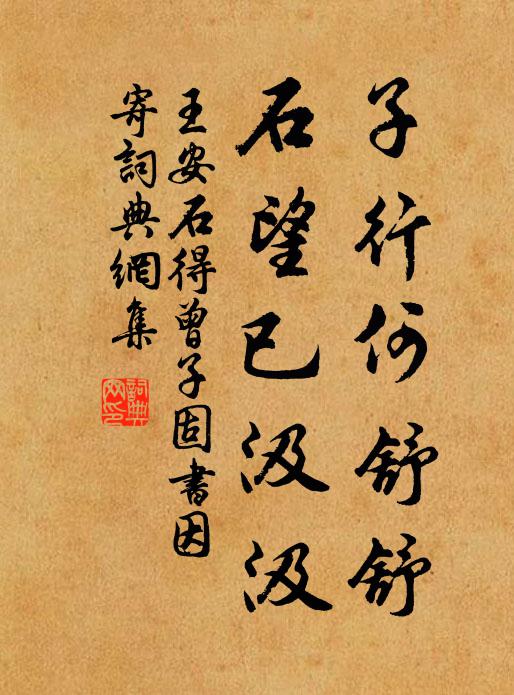 子行何舒舒
石望已汲汲
王安石得曾子固書因
寄詞典網集
詞典網印